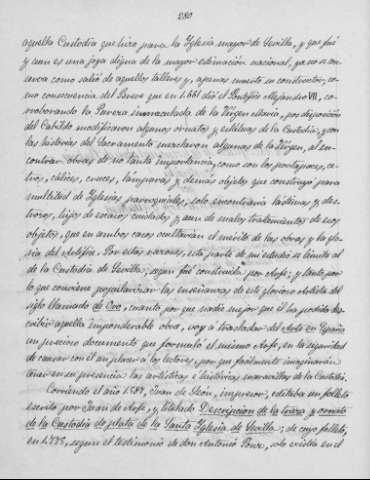 280
aquella Custodia que hizo para la Iglesia mayor de Sevilla, y que fué
y aun es una joya digna de la mayor estimación nacional, ya no se con
serva como salió de aquellos talleres y, apenas muerto su constructor, co
mo consecuencia del Breve que en 1.661 dió el Pontífice Alejandro VII, co
rroborando la Pureza inmaculada de la Vírgen María, por disposición
del Cabildo modificaron algunos ornatos y estátuas de la Custodia, y con
las historias del Sacramento mezclaron algunas de la Vírgen, al en
contrar obras de no tanta importancia, como son los portapaces, ce
tros, cálices, cruces, lámparas y demás objetos que construyó para
multitud de Iglesias parroquiales, solo encontraría lástimas y de
terioros, hijos de escasos cuidados y aun de malos tratamientos de esos
objetos, que en ambos casos ocultarían el mérito de las obras y la glo
ria del Artífice. Por estas razones, esta parte de mi estudio se limita al
de la Custodia de Sevilla, segun fué construida por Arfe; y tanto por
lo que conviene popularizar las enseñanzas de este glorioso Artista del
siglo llamado de Oro, cuanto por que nadie mejor que él ha podido des
cribir aquella imponderable obra, voy a trasladar del Arte en España
un precioso documento que formató el mismo Arfe, en la seguridad
de causar con él un placer a los lectores, por que facilmente imaginarán
tener en su presencia las artísticas e históricas maravillas de la Custodia.
Corriendo el año 1.587, Juan de León, impresor, editaba un folleto
escrito por Juan de Arfe, y titulado Descripcion de la traza y ornato
de la Custodia de plata de la Santa Iglesia de Sevilla; de cuyo folleto,
en 1.775, segun el testimonio de don Antonio Ponz, solo existía en el